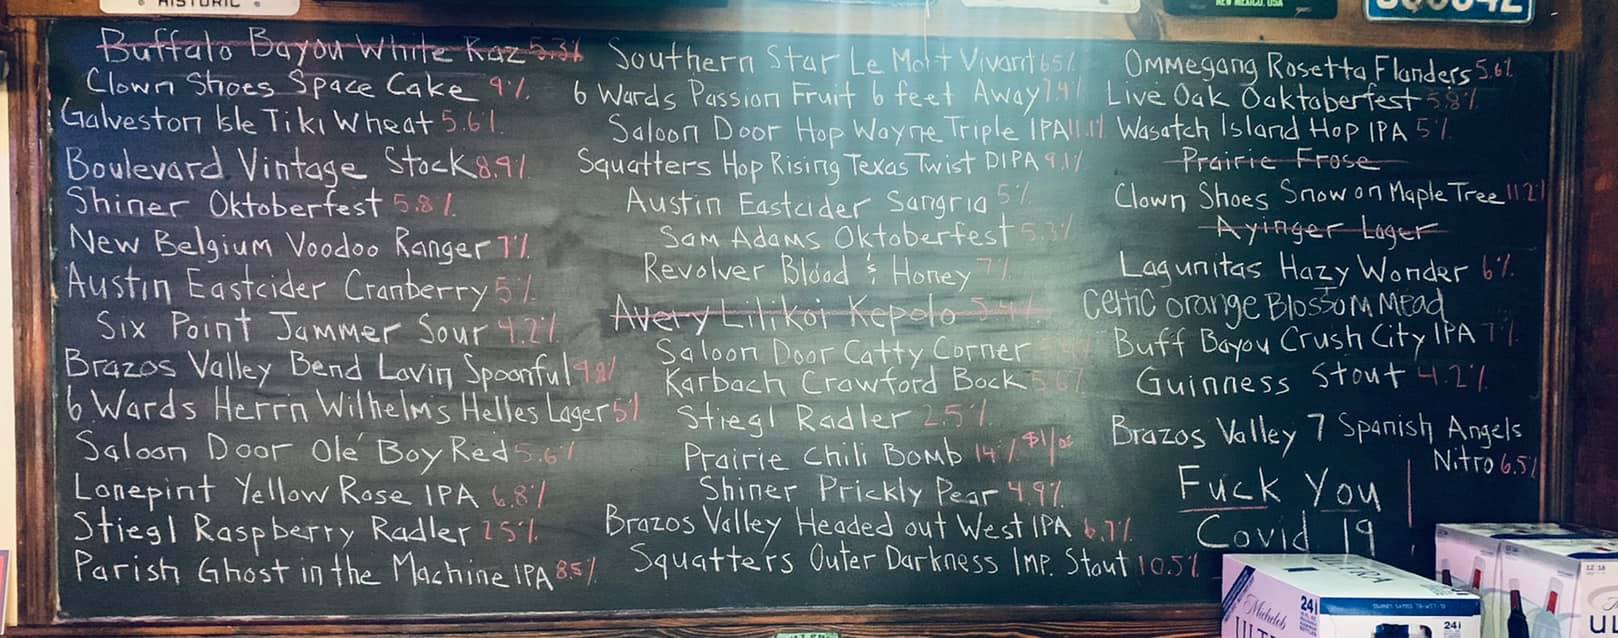 HISTORIC
NEW MEXICO, USA
Buffalo Bayou White Raz 5.3%
Clown Shoes Space Cake 9%
Galveston Isle Tiki Wheat 5.6%
Boulevard Vintage Stock 8.9%
Shiner Oktoberfest 5.8%
New Belgium Voodoo Ranger 7%
Austin Eastcider Cranberry 5%
Six Point Jammer Sour 4.2%
Brazos Valley Bend Lovin Spoonful 9.8%
6 Wards Herrn Wilhelm's Helles Lager 5%
Saloon Door Olé Boy Red 5.6%
Lonepint Yellow Rose IPA 6.8%
Stiegl Raspberry Radler 2.5%
Parish Ghost in the Machine IPA 8.5%
Southern Star Le Mort Vivant 6.5%
6 Wards Passion Fruit 6 feet Away 7.4%
Saloon Door Hop Wayne Triple IPA 11.1%
Squatters Hop Rising Texas Twist DIPA 9.1%
Austin Eastcider Sangria 5%
Sam Adams Oktoberfest 5.3%
Revolver Blood & Honey 7%
Avery Lilikoi Kepolo 5.4%
Saloon Door Catty Corner
Karbach Crawford Bock 5.6%
Stiegl Radler 2.5%
Prairie Chili Bomb 14% $1/oz
Shiner Prickly Pear 4.9%
Brazos Valley Headed out West IPA 6.7%
Squatters Outer Darkness Imp. Stout 10.5%
Ommegang Rosetta Flanders 5.6%
Live Oak Oaktoberfest 5.8%
Wasatch Island Hop IPA 5%
Prairie Frose
Clown Shoes Snow on Maple Tree 11.2%
Ayinger Lager
Lagunitas Hazy Wonder 6%
Celtic orange Blossom Mead
Buff Bayou Crush City IPA 7%
Guinness Stout 4.2%
Brazos Valley 7 Spanish Angels
Nitro 6.5%
Fuck You
Covid 19
Michelob
ULTRA
24
24